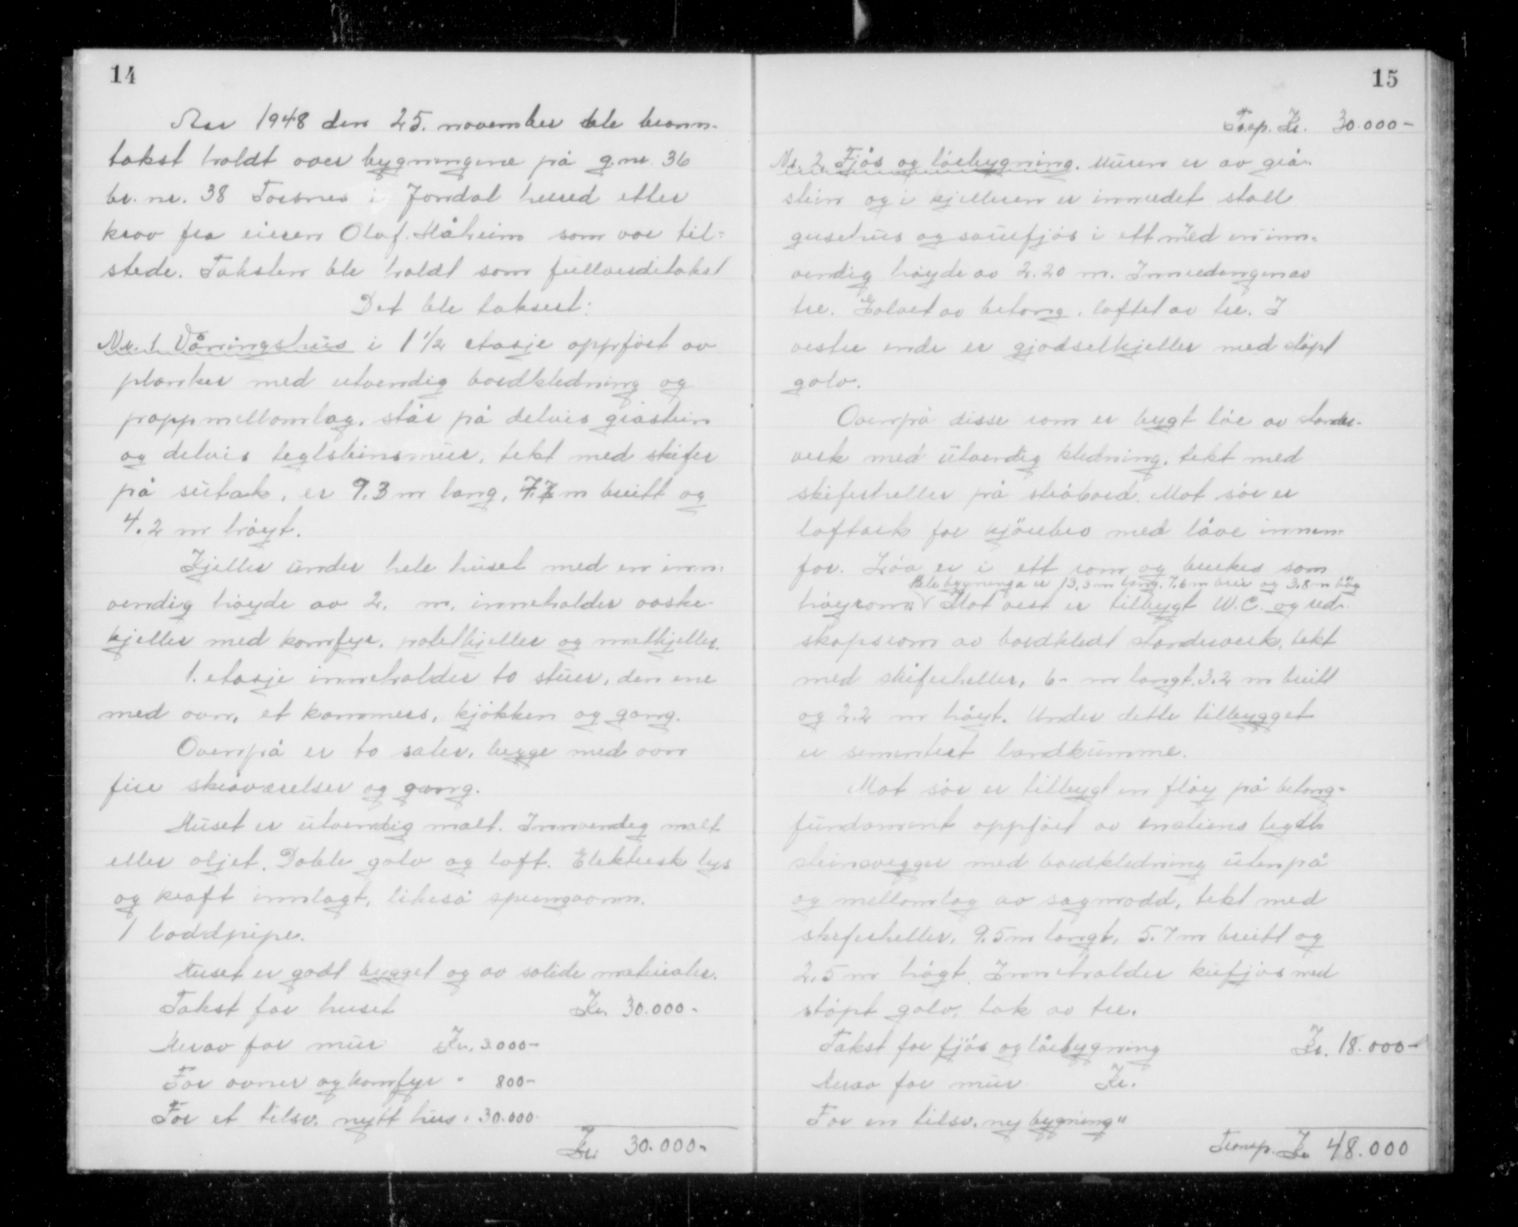 14
Aar 1948 den 25. november ble brann-
takst holdt over bygningene på g.nr. 36
br. nr. 38 Torsnes i Jondal herred etter
krav fra eieren Olaf Måheim som var til-
stede. Taksten ble holdt som fullverditakst
Det ble taksert:
Nr. 1 Våningshus i 1 1/2 etasje oppført av
planker med utvendig bordkledning og
pappmellomlag, står på delvis gråstein
og delvis teglsteinsmur, tekt med skifer
på sutak, er 9.3 m lang, m breitt og
4.2 m høyt.
Kjeller under hele huset med en inn-
vendig høyde av 2. m. inneholder vaske-
kjeller med komfyr, potetkjeller og matkjeller.
1. etasje inneholder to stuer, den ene
med ovn, et kammers, kjøkken og gang.
Ovenpå er to saler, begge med ovn
fire skråværelser og gang.
Huset er utvendig malt. Innvendig malt
eller oljet. Doble golv og loft. Elektrisk lys
og kraft innlagt, likeså springvann.
1 loddpipe.
Huset er godt bygget og av solide materialer.
Takst for huset Kr. 30.000-
Herav for mur Kr. 3.000-
For ovner og komfyr " 800-
For et tilsv. nytt hus " 30.000-
Kr. 30.000-
15
Trsp. Kr. 30.000-
Nr. 2 Fjøs og løebygning. Muren er av grå-
stein og i kjelleren er innredet stall
grisehus og sauefjøs i ett med en inn-
vendig høyde av 2.20 m. Innredningen av
tre. Golvet av betong, loftet av tre. I
vestre ende er gjødselkjeller med støpt
golv.
Ovenpå disse rom er bygt løe av stender-
verk med utvendig kledning, tekt med
skiferheller på stråbord. Mot sør er
loftark for kjørebro med låve innen-
for. Løa er i ett rom og brukes som
bygninga er 13.3 m lang, 7.6 m brei og 3.8 m høg
høyrom. Mot vest er tilbygt W.C. og red-
skapsrom av bordkledt stenderverk, tekt
med skiferheller, 6- m langt, 3.2 m breitt
og 2.2 m høyt. Under dette tilbygget
er sementert landkumme.
Mot sør er tilbygt en fløy på betong-
fundament oppført av enstens tegl-
steinsvegger med bordkledning utenpå
og mellomlag av sagmodd, tekt med
skiferheller, 9.5 m langt, 5.7 m breitt og
2.5 m høgt. Inneholder kufjøs med
støpt golv, tak av tre.
Takst for fjøs og løebygning Kr. 18.000-
Herav for mur Kr.
For en tilsv. ny bygning "
Transp. Kr. 48.000